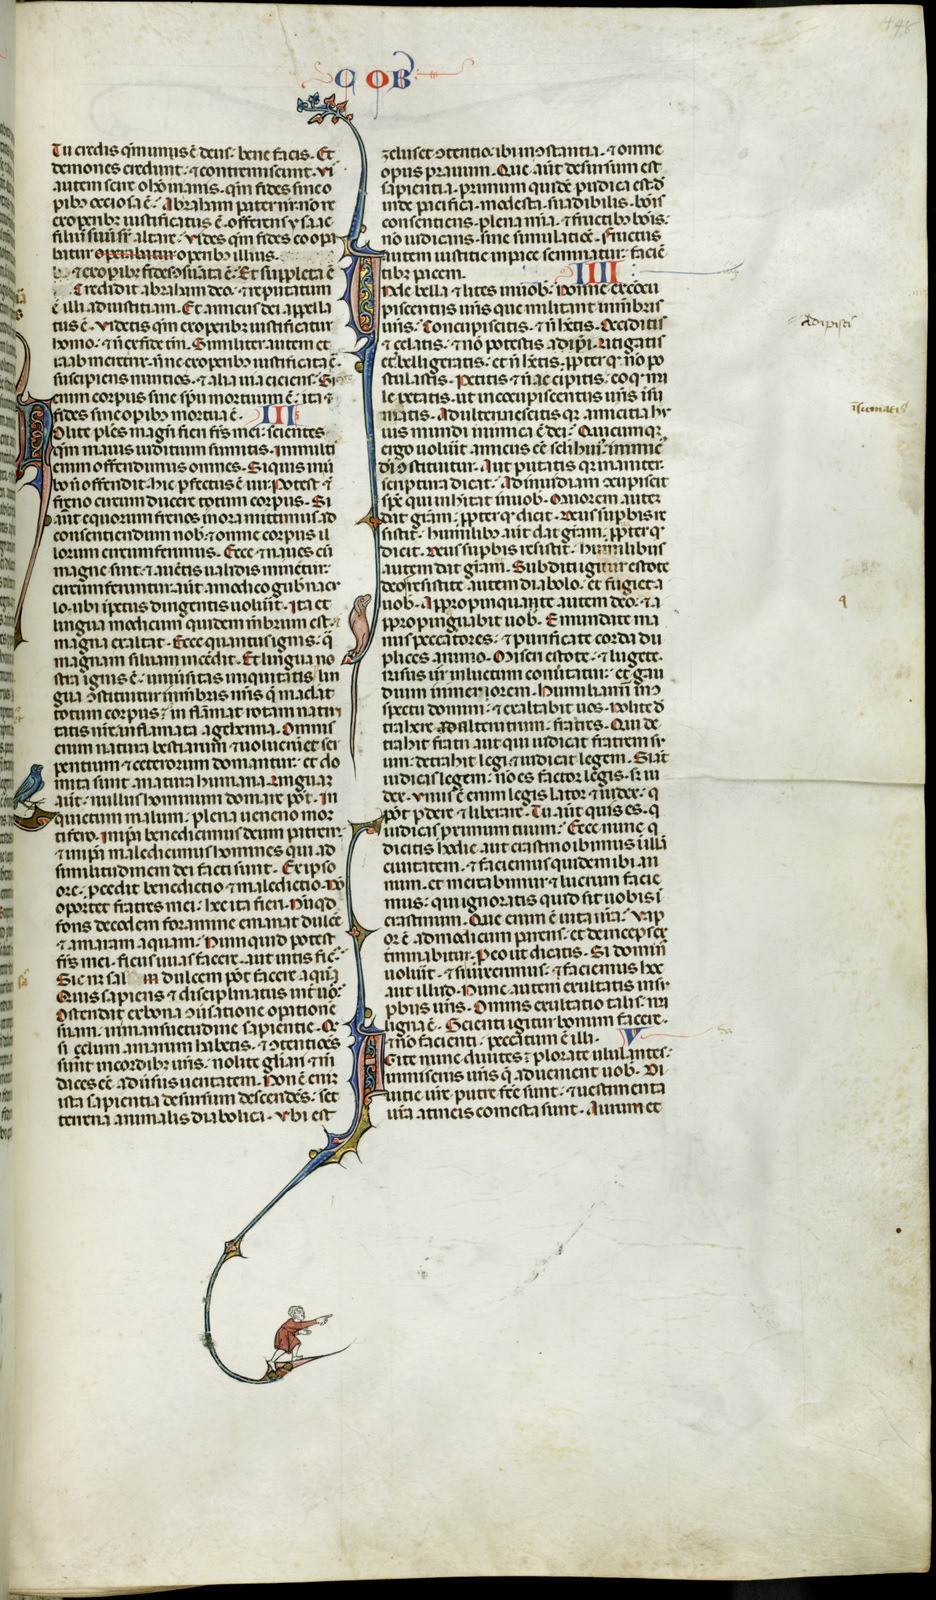 448
COB
Tu credis qm unus ē deus: bene facis. Et
demones credunt: ⁊ contremiscunt. Vi
autem scire o homo inanis. qm fides sine o
pib; occiosa ē. Abraham pater nr̄ nōne
ex operib; iustificatus ē offerens ysaac
filiū suū sr̄ altare. Vides qm fides coopa
batur operabatur operib; illius.
⁊ ex opib; fides ↄsūata ē. Et suppleta ē
Credidit abraham deo. ⁊ reputatum
ē illi ad iusticiam. Et amicus dei appella
tus ē. Videtis qm ex operib; iustificatur
homo. ⁊ n̄ ex fide tm̄. Similiter autem et
raab meretrix. nne ex operib; iustificata ē.
suscipiens nuntios. ⁊ alia uia eiciens. Si
enim corpus sine spū mortuum ē. ita ⁊
fides sine opib; mortua ē. III
Nolite ples magr̄i fieri frēs mei. scientes
qm maius iuditium sumitis. In multi
enim offendimus omnes. Si quis in ū
bo n̄ offendit. hic pfectus ē uir. Potest ⁊
freno circum ducere totum corpus. Si
aūt equorum frenos in ora mittimus ad
consentiendum nob. ⁊ omne corpus il
lorum circumferimus. Ecce ⁊ naues cū
magne sint. ⁊ a uētis ualidis minētur.
circumferuntur. aūt a modico gub̄nacu
lo. ubi īpetus dirigentis uoluīt. Ita et
lingua modicum quidem mēbrum est. ⁊
magna exaltat. Ecce quantus ignis. q̄
magnam siluam incēdit. Et lingua no
stra ignis ē. uniuersitas iniquitatis. lin
gua ↄstituitur in mēbris nr̄is q̄ maclat
totum corpus. ⁊ inflāmat rotam natiui
tatis nr̄e. inflammata a gehenna. Omnis
enim natura bestiarum ⁊ uolucrū et ser
pentium ⁊ ceterorum domantur. et do
mita sunt a natura humana. Linguam
aūt. nullus hominum domare pōt. In
quietum malum. plena ueneno mor
tifero. In ipā benedicimus deum patrem.
⁊ in ipā maledicimus homines qui ad
similitudinem dei facti sunt. Ex ipso
ore. pcedit benedictio ⁊ maledictio. Nō
oportet fratres mei. hec ita fieri. Nūqd
fons de eodem foramine emanat dulcē
⁊ amaram aquam. Numquid potest
frēs mei. ficus uuas facere. aut uitis fic̄.
Sic nr̄ sal m dulcem pōt facere aquā
Quis sapiens ⁊ disciplinatus int̄ uos.
Ostendat ex bona ↄuersatione opatione
suam. in mansuetudine sapientie. Q̄
si celum amarum habetis. ⁊ ↄtentiones
sunt in cordib; ur̄is. nolite gl̄iari ⁊ m̄
daces eē aduersus ueritatem. Non ē enim
ista sapientia desursum descendēs. set
terrena animalis diabolica. Vbi est
zelus et ↄtentio. ibi inↄstantia. ⁊ omne
opus prauum. Que aūt desursum est
sapientia. primum quidē pudica est. d
inde pacifica. modesta. suadibilis. bōis
consentiens. plena mīa. ⁊ fructib; bōis.
nō iudicans. sine simulatiōe. Fructus
autem iustitie in pace seminatur. faciē
tib; pacem. IIII
Vnde bella ⁊ lites in uob. Nonne ex concu
piscentiis ur̄is que militant in mēbris
ur̄is. Concupiscitis. ⁊ n̄ hētis. Occiditis
⁊ celatis. ⁊ nō potestis adipi. Litigatis
et belligeratis. et n̄ hētis. ppter q̄ nō po
stulastis. Petitis ⁊ n̄ accipitis. eo q̄ ma
le petatis. ut in concupiscentiis ur̄is isu
matis. Adulteri nescitis q̄ amicitia hu
ius mundi inimica ē dei. Quicumq̄
ergo uoluīt amicus eē seculi hui. inimic̄
dī ↄstituitur. Aut putatis q̄ inaniter.
scriptura dicat. Ad inuidiam ↄcupiscit
spc̄ qui inhītat in uob. Maiorem autem
dat grām. ppter q̄ dicit. Deus supbis re
sistit. humilib; aūt dat grām. ppter q̄
dicit. Deus supbis resistit. humilibus
autem dat grām. Subditi igitur estote
deo. resistite autem diabolo. et fugiet a
uob. Appropinquante autem deo. ⁊ a
ppropinquabit uob. Emundate ma
nus peccatores. ⁊ purificate corda du
plices animo. Miseri estote. ⁊ lugete.
risus ur̄ in luctum conūtatur. et gau
dium in merorem. Humiliamī in ↄ
spectu domini. ⁊ exaltabit uos. Nolite d
trahere de alterutrum. fratres. Qui de
trahit fratri aut qui iudicat fratrem su
um. detrahit legi. ⁊ iudicat legem. Si aūt
iudicas legem. no es factor legis. s; iu
dex. Vnus ē enim legis lator ⁊ iudex. q
pōt pdere ⁊ liberare. Tu aūt quis es. q
iudicas primum tuum. Ecce nunc q
dicitis hodie aut crastino ibimus illā
ciuitatem. ⁊ faciemus quidem ibi an
num. et mercabimur ⁊ lucrum facie
mus. qui ignoratis quid sit uobis ī
crastinum. Que enim ē uita ur̄a. Vap
or ē ad modicum parens. et deinceps ex
tminabitur. Peo ut dicatis. Si domin̄
uoluīt. ⁊ si uixerimus. ⁊ faciemus hec
aut illud. Nunc autem exultatis in su
pbiis ur̄is. Omnis exultatio talis. ma
ligna ē. Scienti igitur bonum facere.
⁊ nō facienti. peccatum ē illi. V
Agite nunc diuites ⁊ plorate ululantes.
in miseriis ur̄is q̄ aduenient uob. Di
uitie ur̄e putre fc̄e sunt. ⁊ uestimenta
ur̄a a tineis comesta sunt. Aurum et
Adipisci
īsumatis